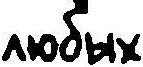 любых